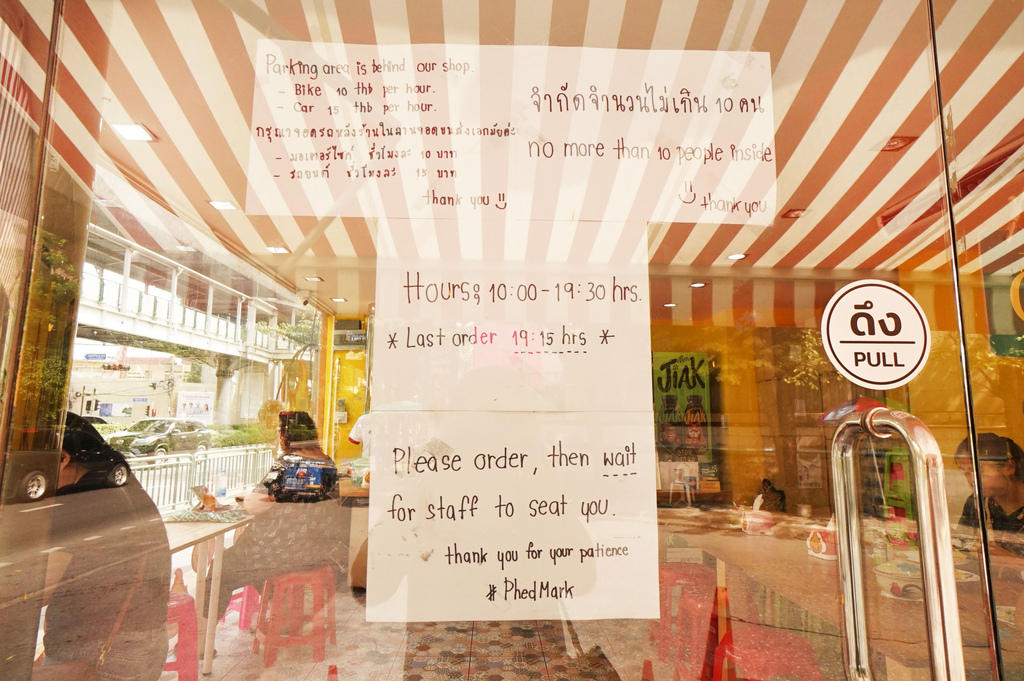 Parking area is behind our shop.
- Bike 10 thb per hour.
- Car 15 thb per hour.
กรุณาจอดรถหลังร้านในลานจอดขนส่งเอกมัยค่ะ
- มอเตอร์ไซก์ ชั่วโมงละ 10 บาท
- รถยนต์ ชั่วโมงละ 15 บาท
thank you
จำกัดจำนวนไม่เกิน 10 คน
no more than 10 people inside
thank you
Hours: 10:00-19:30 hrs.
* Last order 19:15 hrs *
Please order, then wait
for staff to seat you.
thank you for your patience
#PhedMark
ดึง
PULL
JIAK